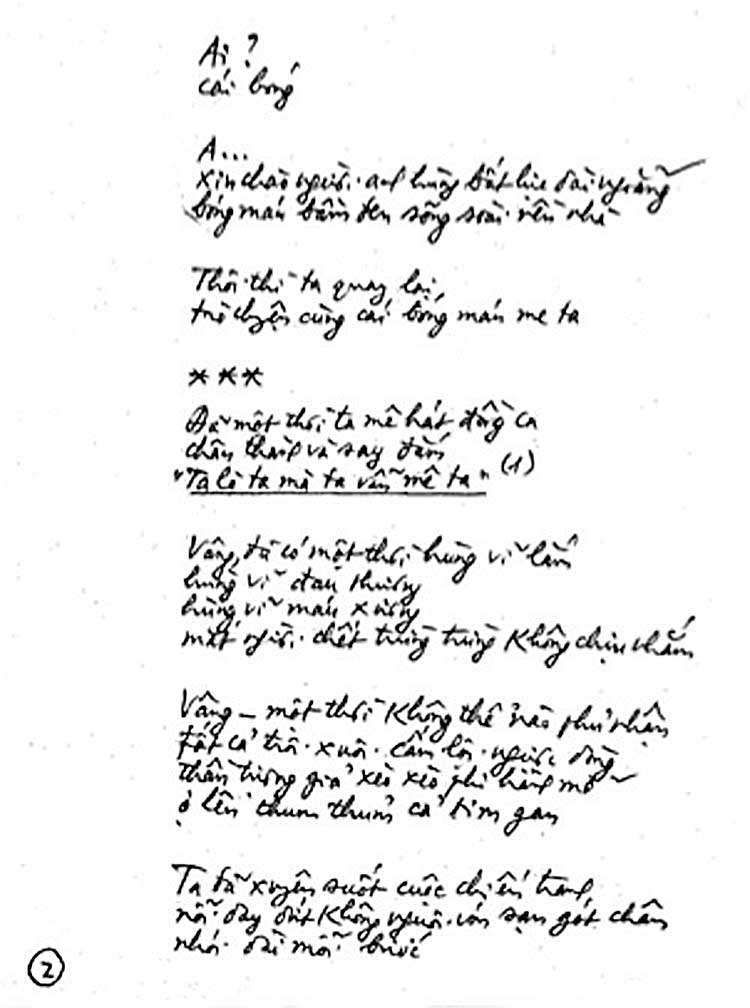 Ai?
cái bóng
A...
xin chào người anh hùng bất lực dài ngoẵng
bóng máu bầm đen sõng soài nền nhà
Thôi thì ta quay lại,
trò chuyện cùng cái bóng máu me ta
***
Đã một thời ta mê hát đồng ca
chân thành và say đắm
"Ta là ta mà ta vẫn mê ta" (1)
Vâng, đã có một thời hùng vĩ lắm
hùng vĩ đau thương
hùng vĩ máu xương
mắt người chết trừng trừng không chịu nhắm
Vâng - một thời không thể nào phủ nhận
tất cả trôi xuôi cấm lội ngược dòng
thần tượng giả xèo xèo phi hành mỡ
ợ lên thum thủm cả tim gan
Ta đã xuyên suốt cuộc chiến tranh,
nỗi day dứt không nguôi vón sạn gót chân
nhói dài mỗi bước
2